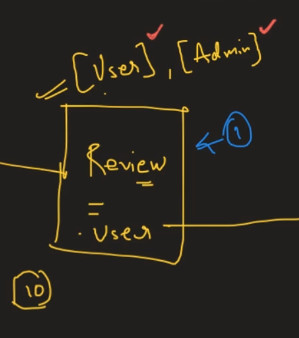 [User], [Admin]
①
Review
. User
⑩